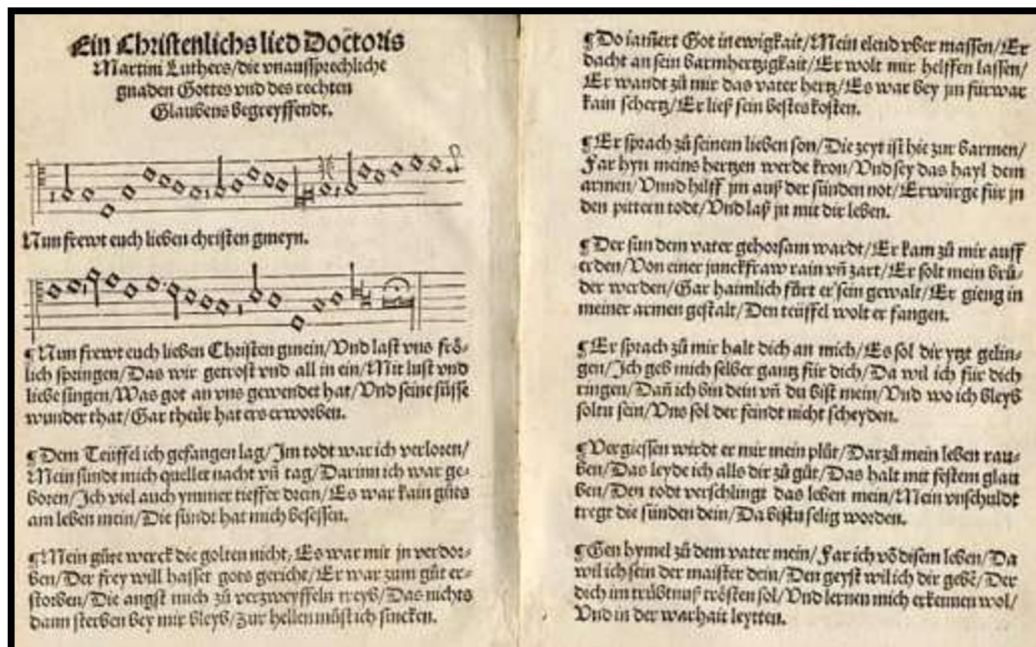 Ein Christenlichs lied Doctoris
Martini Luthers/die vnaussprechliche
gnaden Gottes vnd des rechten
Glaubens begreyffendt.
Nun frewt euch lieben christen gmeyn.
¶Nun frewt euch lieben Christen gmein/Vnd last vns frö-
lich springen/Das wir getrost vnd all in ein/Mit lust vnd
liebe singen/Was got an vns gewendet hat/Vnd seine süsse
wunder that/Gar theür hat ers erworben.
¶Dem Teüffel ich gefangen lag/Im todt war ich verloren/
Mein sündt mich quellet nacht vñ tag/Darinn ich war ge-
boren/Ich viel auch ymmer tieffer drein/Es war kain güts
am leben mein/Die sündt hat mich besessen.
¶Mein güte werck die golten nicht/Es war mit jn verdor-
ben/Der frey will hasset gots gericht/Er war zum güt er-
storben/Die angst mich zů verzweyffeln treyb/Das nichts
dann sterben bey mir bleyb/Zur hellen můst ich sincken.
¶Do iamert Got in ewigkait/Mein elend vber massen/Er
dacht an sein barmhertzigkait/Er wolt mir helffen lassen/
Er wandt zů mir das vater hertz/Es war bey jm fürwar
kain schertz/Er ließ sein bestes kosten.
¶Er sprach zů seinem lieben son/Die zeyt ist hie zur barmen/
Far hyn meins hertzen werde kron/Vnd sey das hayl dem
armen/Vnnd hilff jm auß der sünden not/Erwürge für jn
den pittern todt/Vnd laß jn mit dir leben.
¶Der sun dem vater gehorsam wardt/Er kam zů mir auff
erden/Von einer junckfraw rain vñ zart/Er solt mein brů-
der werden/Gar haimlich fürt er sein gewalt/Er gieng in
meiner armen gestalt/Den teüffel wolt er fangen.
¶Er sprach zů mir halt dich an mich/Es sol dir ytzt gelin-
gen/Ich geb mich selber gantz für dich/Da wil ich für dich
ringen/Dañ ich bin dein vñ du bist mein/Vnd wo ich bleyb
soltu sein/Vns sol der feindt nicht scheyden.
¶Vergiessen wirdt er mir mein plůt/Darzů mein leben rau-
ben/Das leyde ich alls dir zů gůt/Das halt mit festem glau
ben/Den todt verschlingt das leben mein/Mein vnschuldt
tregt die sünden dein/Da bistu selig worden.
¶Gen hymel zů dem vater mein/Far ich võ disem leben/Da
wil ich sein der maister dein/Den geyst wil ich dir gebẽ/Der
dich im trübtnuß trösten sol/Vnd lernen mich erkennen wol/
Vnd in der warhait leytten.